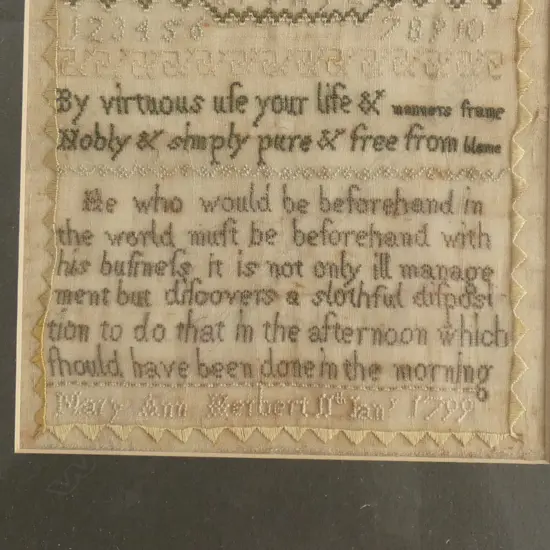 1 2 3 4 5 6 7 8 9 10
By virtuous uſe your life & manners frame
Nobly & simply pure & free from blame
He who would be beforehand in
the world muſt be beforehand with
his buſineſs it is not only ill manage
ment but diſcovers a slothful diſpoſi
tion to do that in the afternoon which
ſhould have been done in the morning
Mary Ann Herbert 11th Jany 1799